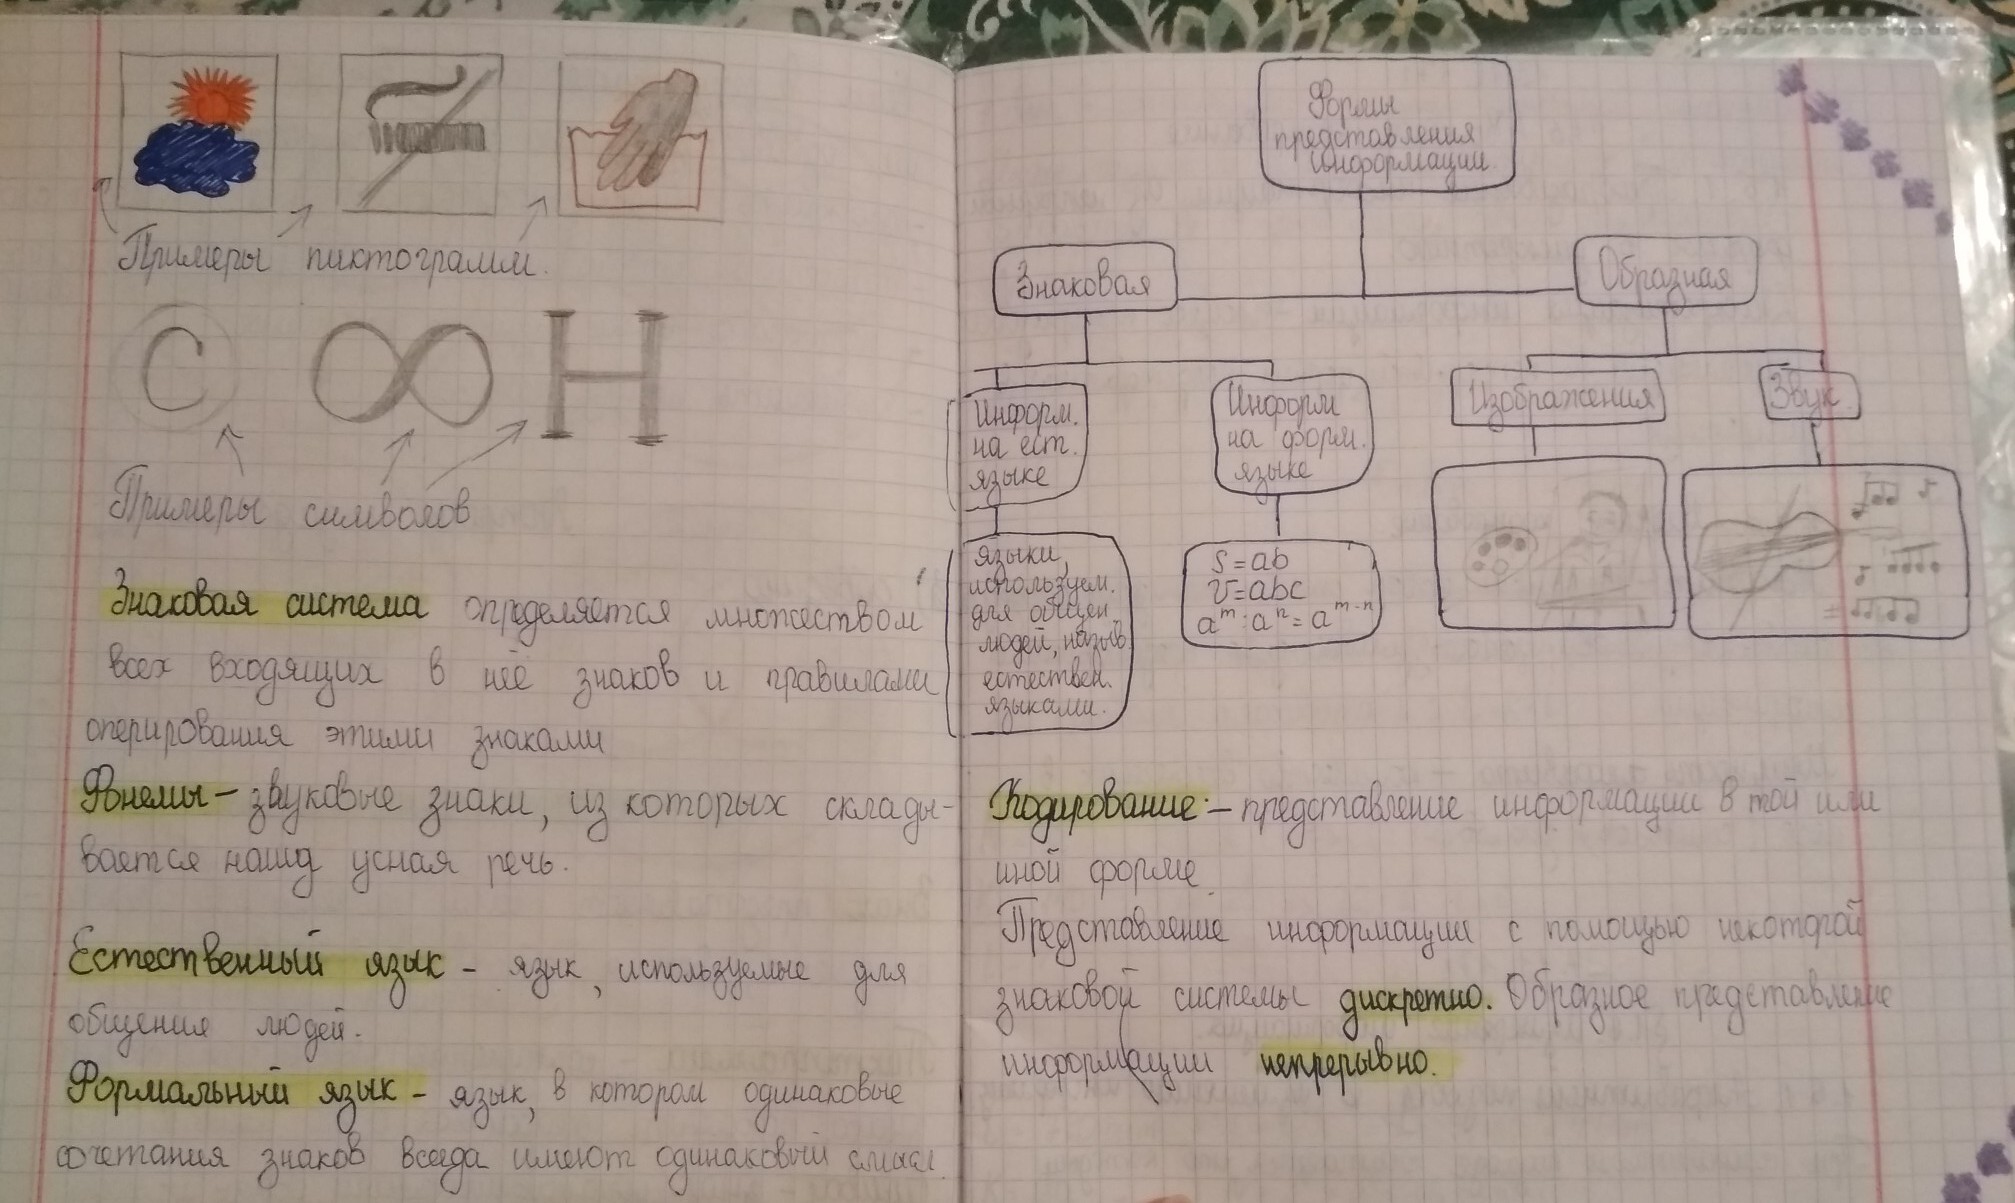 Примеры пиктограмм.
С ∞ Н
Примеры символов
Знаковая система определяется множеством
всех входящих в неё знаков и правилами
оперирования этими знаками
Фонемы – звуковые знаки, из которых склады-
вается наша усная речь.
Естественный язык – язык, используемые для
общения людей.
Формальный язык – язык, в котором одинаковые
сочетания знаков всегда имеют одинаковый смысл.
Формы
представления
информации.
Знаковая
Образная
Информ.
на ест.
языке
Информ
на форм.
языке
Изображения
Звук.
языки,
используем.
для общен.
людей, назыв.
естествен.
языками.
S=ab
V=abc
aᵐ:aⁿ=aᵐ⁻ⁿ
Кодирование: – представление информации в той или
иной форме.
Представление информации с помощью некоторой
знаковой системы дискретно. Образное представление
информации непрерывно.